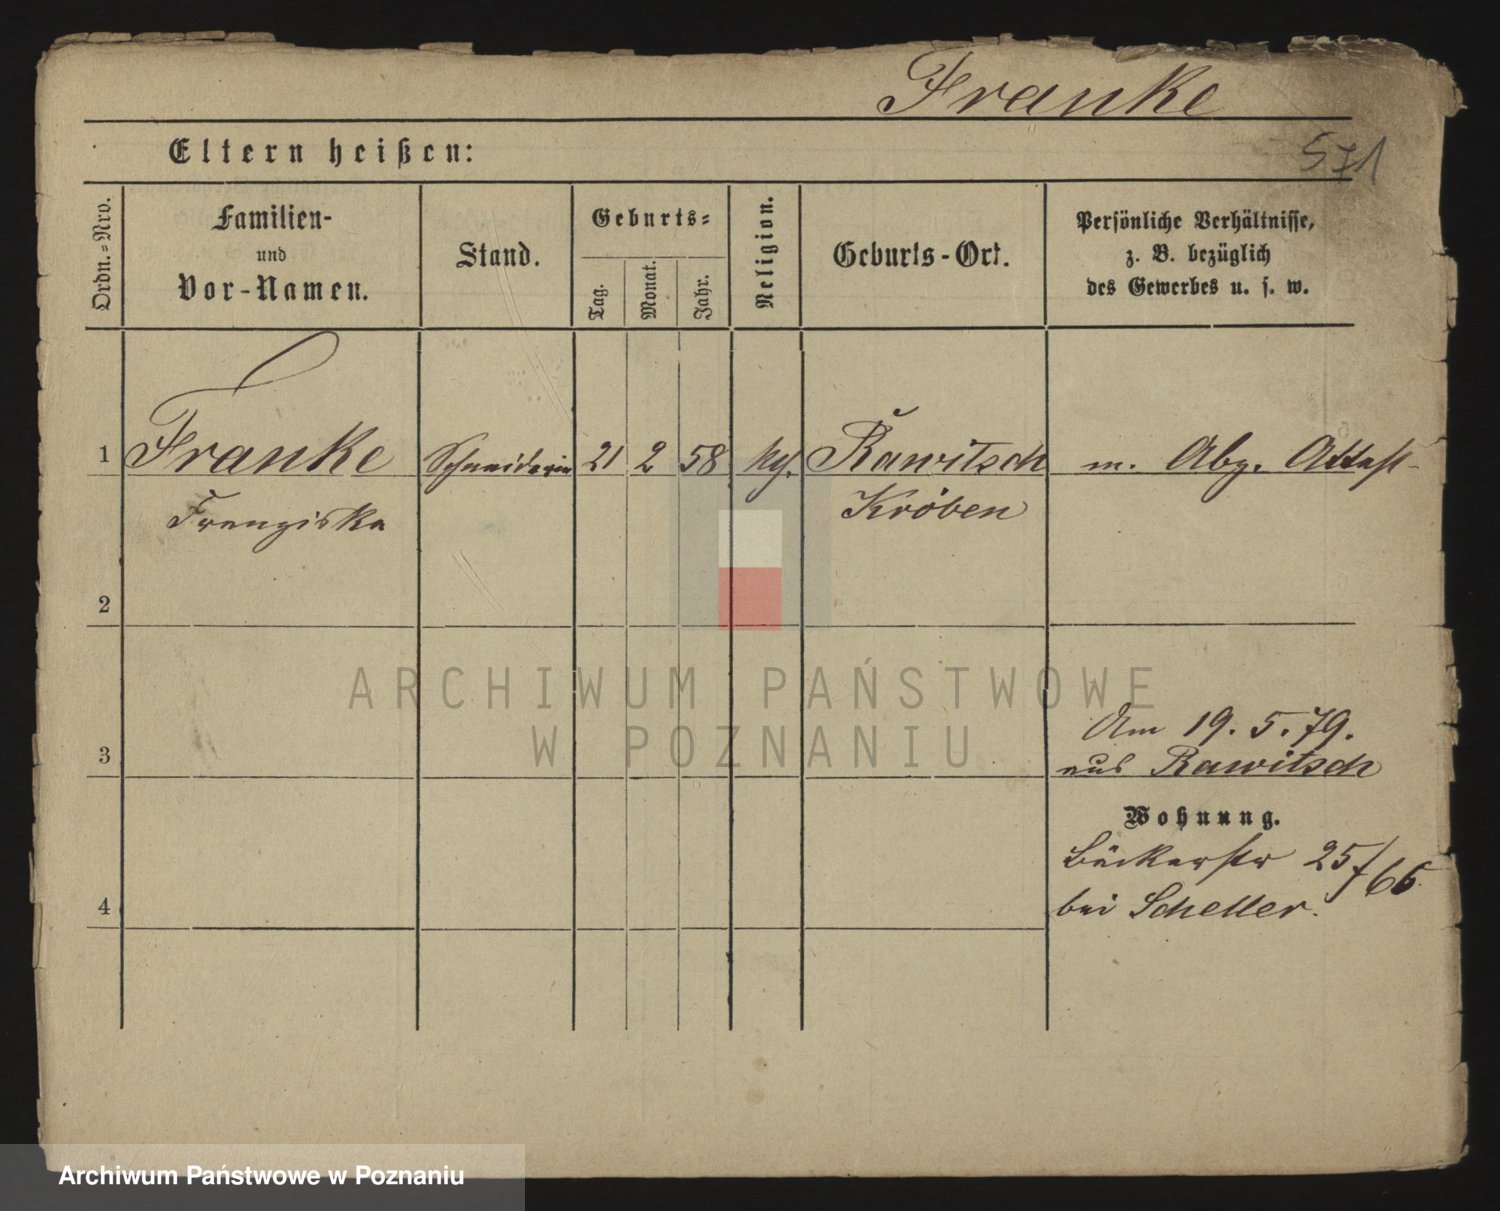 Franke
571
Eltern heißen:
Ordn.-Nro.
Familien-
und
Vor-Namen.
Stand.
Geburts-
Tag.
Monat.
Jahr.
Religion.
Geburts-Ort.
Persönliche Verhältnisse,
z. B. bezüglich
des Gewerbes u. s. w.
1 Franke Schneiderin 21 2 58 Rawitsch m. Abg. Attest
Franziska Kröben
2
ARCHIWUM PAŃSTWOWE
W POZNANIU
Am 19. 5. 79.
3 aus Rawitsch
Wohnung.
Bäckerstr 25/66
4 bei Scheller.
Archiwum Państwowe w Poznaniu